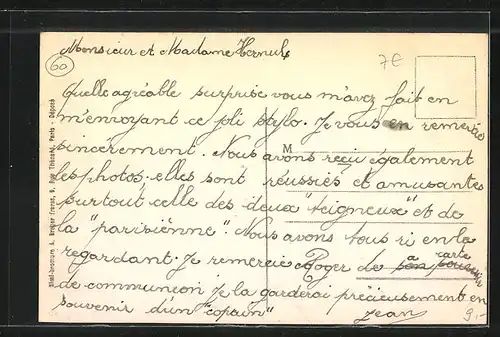 Monsieur et Madame
60
7€
Quelle agréable surprise vous m'avez fait en
m'envoyant ce joli stylo. Je vous en remercie
sincèrement. Nous avons reçu également
les photos. elles sont réussies et amusantes
surtout celle des deux "teigneux" et de
la "parisiènne". Nous avons tous ri en la
regardant. Je remercie Roger de sa carte
de communion je la garderai précieusement en
souvenir d'un "copain" Jean
9.-
M
Simi-bromure A. Breger frères, 9, Rue Thénard, Paris - Déposé